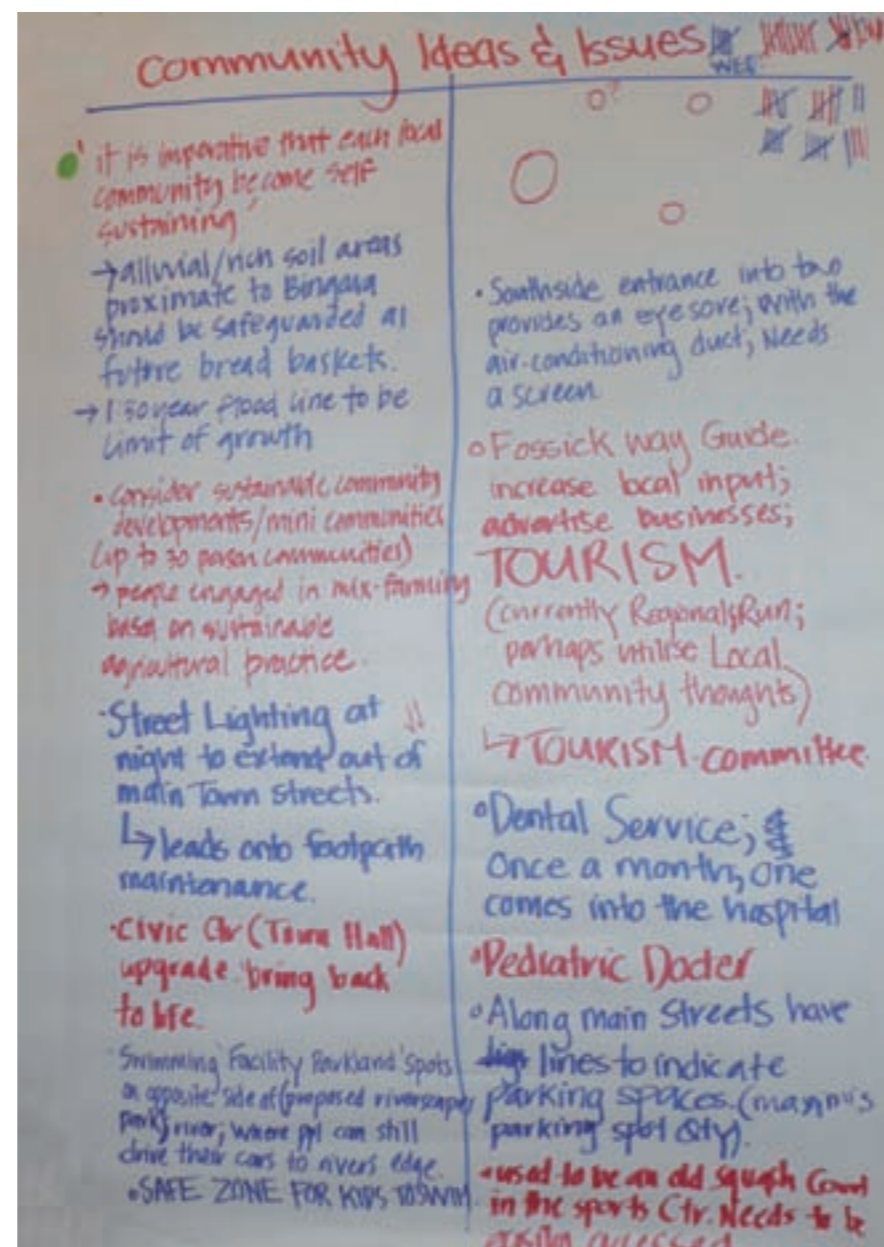 Community Ideas & Issues
WEE
it is imperative that each local
community become self
sustaining
→ alluvial/rich soil areas
proximate to Bingara
should be safeguarded as
future bread baskets.
→ 1 50 year flood line to be
limit of growth
• consider sustainable community
developments/mini communities
(up to 30 person communities)
→ people engaged in mix-farming
base on sustainable
agricultural practice.
• Street Lighting at
night to extend out of
main Town streets.
↳ leads onto footpath
maintenance.
• Civic Ctr (Town Hall)
upgrade bring back
to life.
• Swimming Facility Parkland Spots
on opposite side of (proposed riverscape
park) river; where ppl can still
drive their cars to rivers edge.
• SAFE ZONE FOR KIDS TO SWIM
• Southside entrance into
provides an eyesore; with the
air-conditioning duct; Needs
a screen
• Fossick Way Guide.
increase local input;
advertise businesses;
TOURISM.
(currently Regionally Run;
perhaps utilise Local
community thoughts)
↳ TOURISM committee
• Dental Service;
Once a month, one
comes into the hospital
• Pediatric Docter
• Along main streets have
lines to indicate
parking spaces.
parking spot Qty).
• used to be an old squash Court
in the sports Ctr. Needs to be
accessed